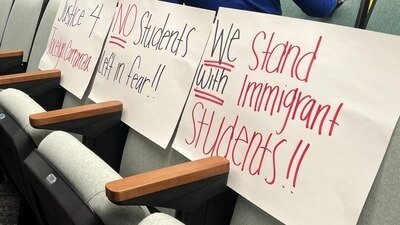 Justice 4
Jocelyn
NO Students
Left in fear!!
We Stand
with Immigrant
Students!!